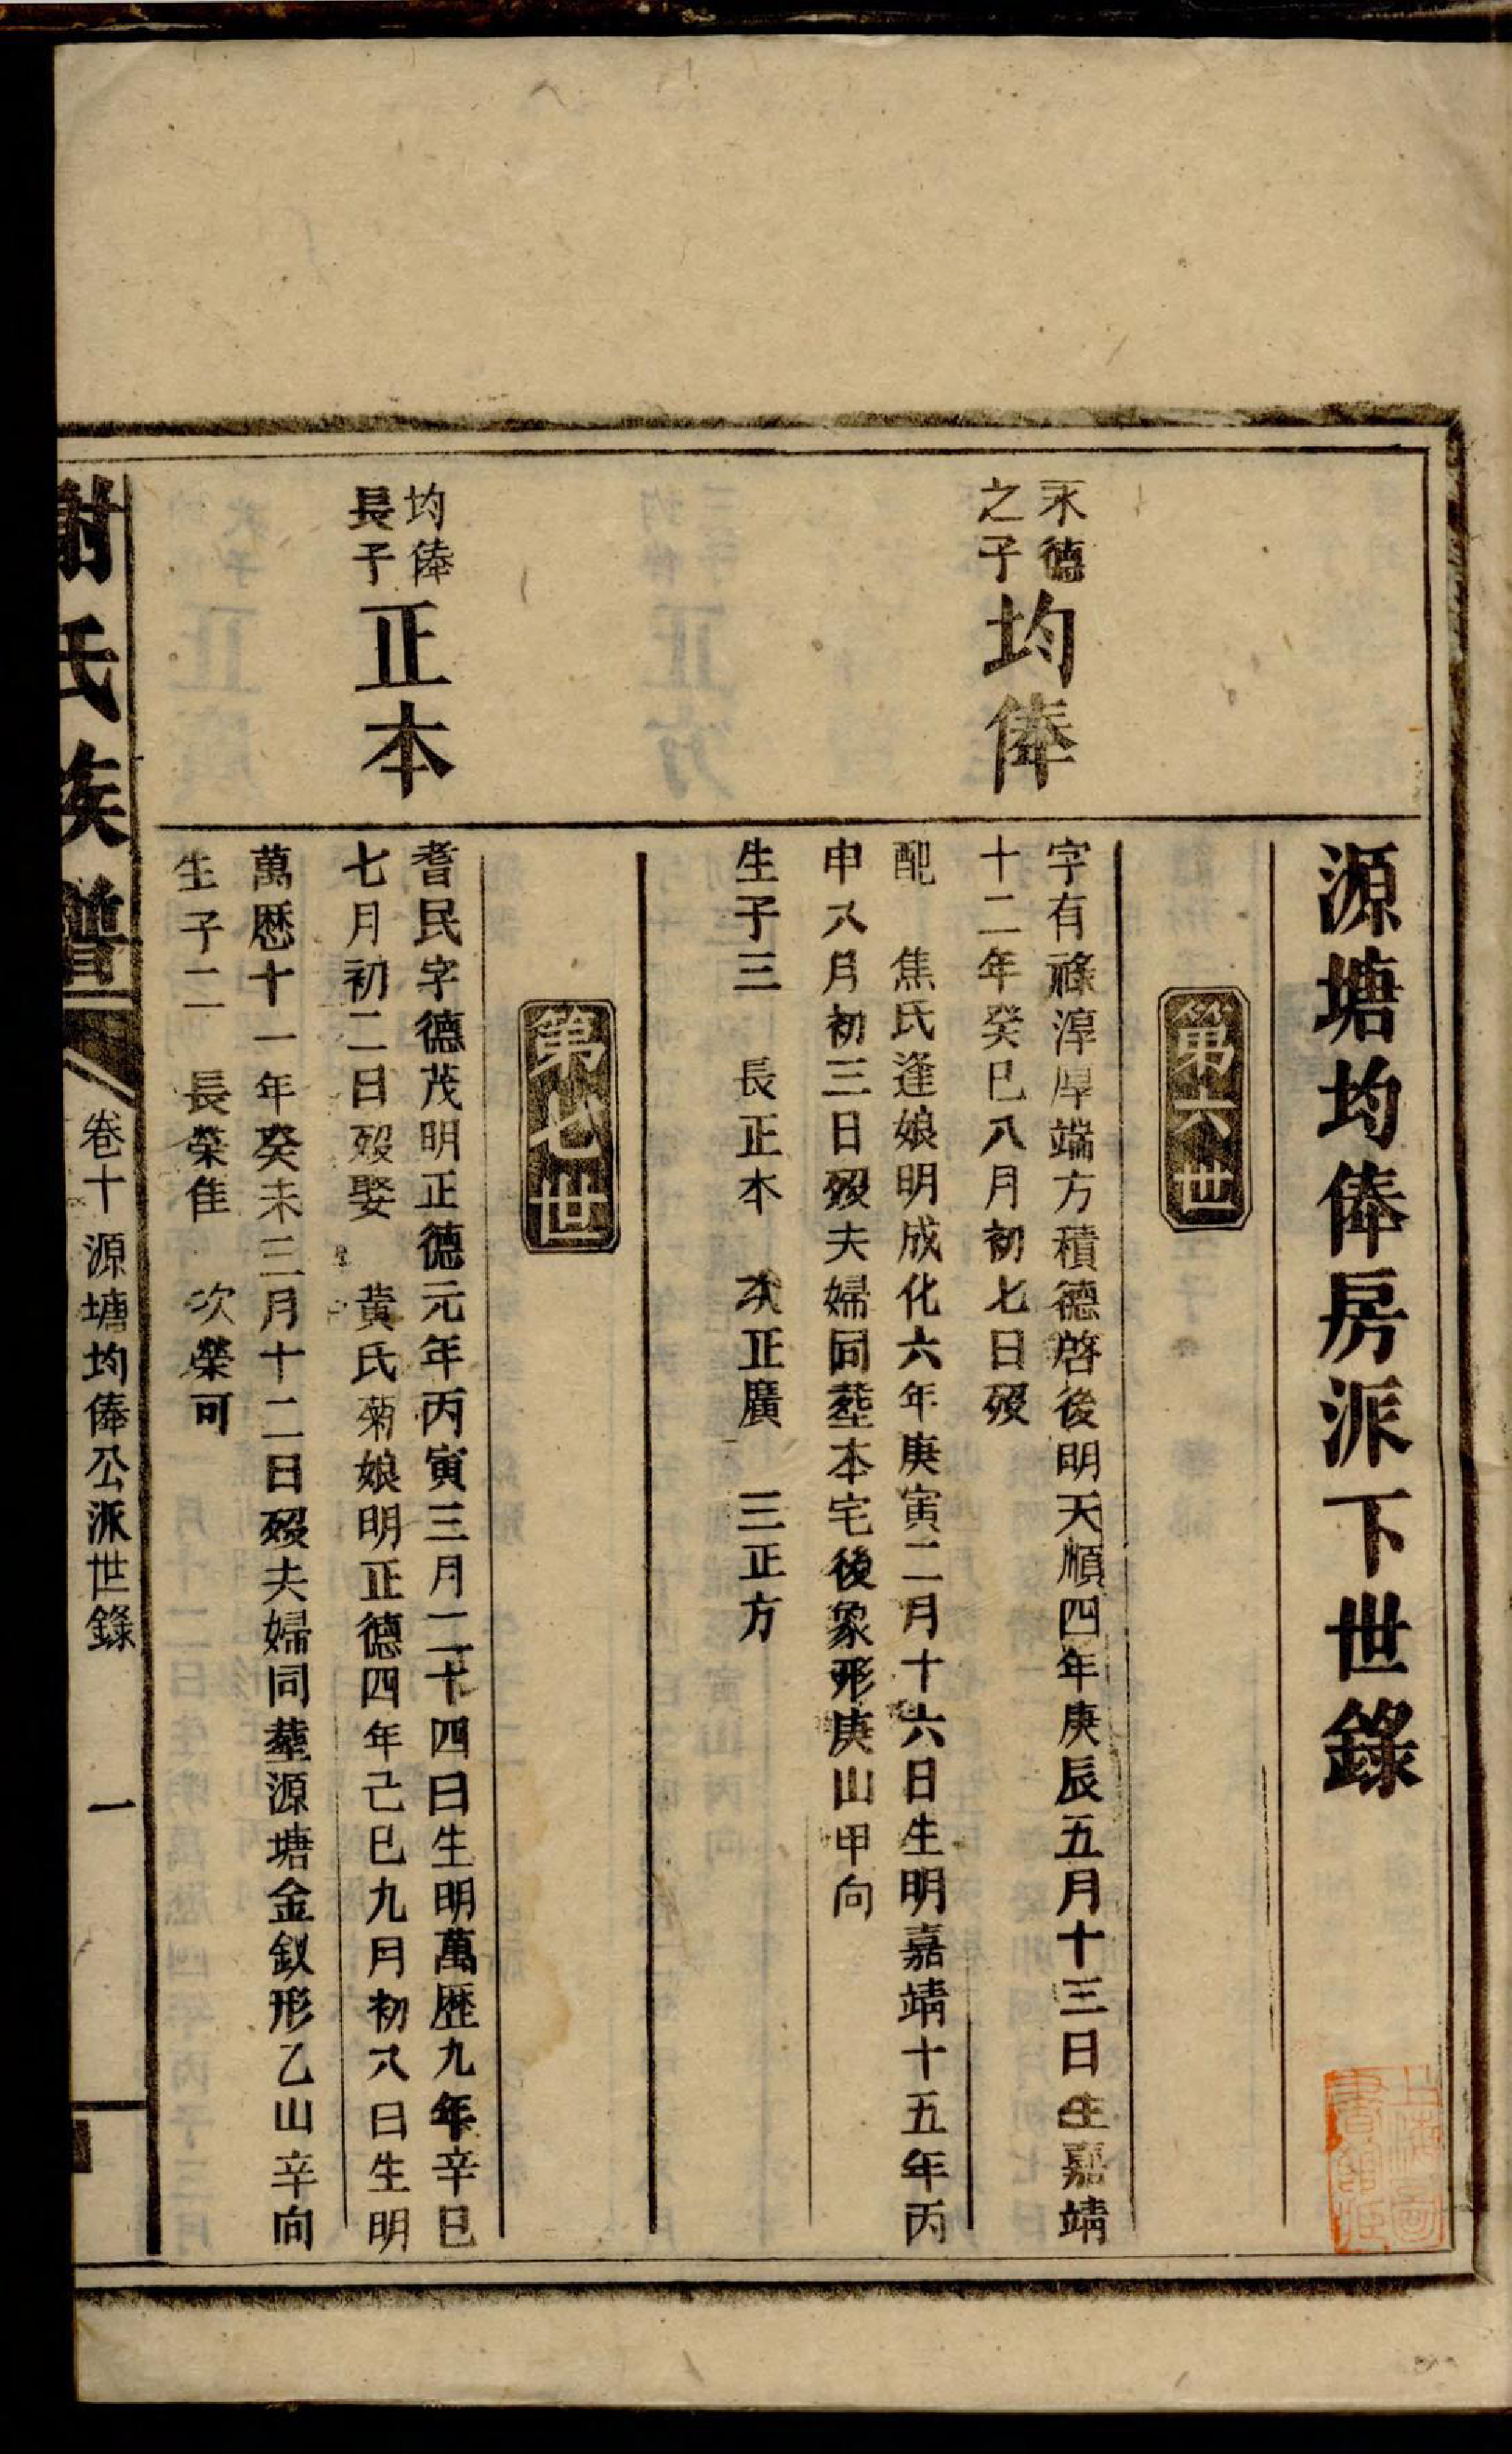 源塘均俸房派下世錄
第六世
永德
之子
均俸
字有祿淳厚端方積德啓後明天順四年庚辰五月十三日生嘉靖
十二年癸巳八月初七日歿
配 焦氏逢娘明成化六年庚寅二月十六日生明嘉靖十五年丙
申八月初三日歿夫婦同塟本宅後象形庚山甲向
生子三 長正本 次正廣 三正方
第七世
均俸
長子
正本
耆民字德茂明正德元年丙寅三月二十四日生明萬歷九年辛巳
七月初二日歿娶 黃氏菊娘明正德四年己巳九月初八日生明
萬歷十一年癸未三月十二日歿夫婦同塟源塘金釵形乙山辛向
生子二 長榮隹 次榮可
謝氏族譜
卷十 源塘均俸公派世錄
一
上海圖
書館藏